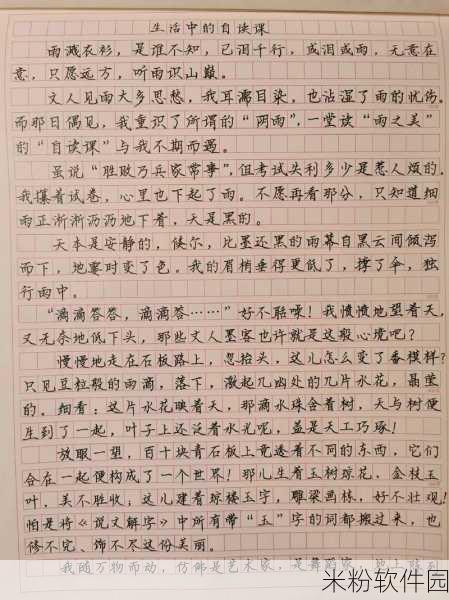 生活中的自读课
雨溅衣衫，是谁不知，已泪千行，或泪或雨，无意在
意，只愿远方，听雨识山巅。
文人见雨大多思愁，我耳濡目染，也沾湿了雨的忧伤。
而那日偶见，我重识了所谓的“两雨”，一堂读“雨之美”
的“自读课”与我不期而遇。
虽说“胜败乃兵家常事”，但考试失利多少是惹人烦的。
我攥着试卷，心里也下起了雨。不愿再看那分，只知道细
雨正淅淅沥沥地下着，天是黑的。
天本是安静的，倏尔，比墨还黑的雨幕自黑云间倾泻
而下，地霎时变了色。我的眉梢垂得更低了，撑了伞，独
行雨中。
“滴滴答答，滴滴答……”好不聒噪！我愤愤地望着天，
又无奈地低下头，那些文人墨客也许就是这般心境吧？
慢慢地走在石板路上，忽抬头，这儿怎么变了番模样？
只见豆粒般的雨滴，落下，激起几凼处的几片水花，晶莹
的。细看：这片水花映着天，那滴水珠含着树，天与树便
生到了一起，叶子上还泛着水光呢，盖是天工巧琢！
放眼一望，百十块青石板上竟透着不同的东西，它们
合在一起便构成了一个世界！那儿生着玉树琼花，金枝玉
叶，美不胜收，这儿建着琼楼玉宇，雕梁画林，好不壮观！
怕是将《说文解字》中所有带“玉”字的词都搬过来，也
修不完、饰不尽这份美丽。
我随万物而动，仿佛是艺术家，是舞蹈家，地上
米粉软件园